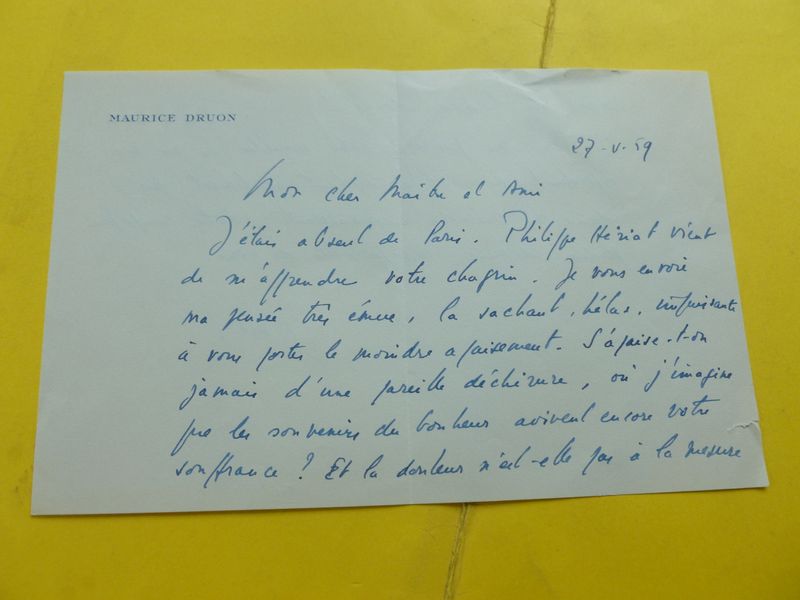 MAURICE DRUON
27-V-59
Mon cher Maître et Ami
J'étais absent de Paris. Philippe Hériat vient
de m'apprendre votre chagrin. Je vous envoie
ma pensée très émue, la sachant, hélas, impuissante
à vous porter le moindre apaisement. S'apaise-t-on
jamais d'une pareille déchirure, où j'imagine
que les souvenirs du bonheur avivent encore votre
souffrance ? Et la douleur n'est-elle pas à la mesure